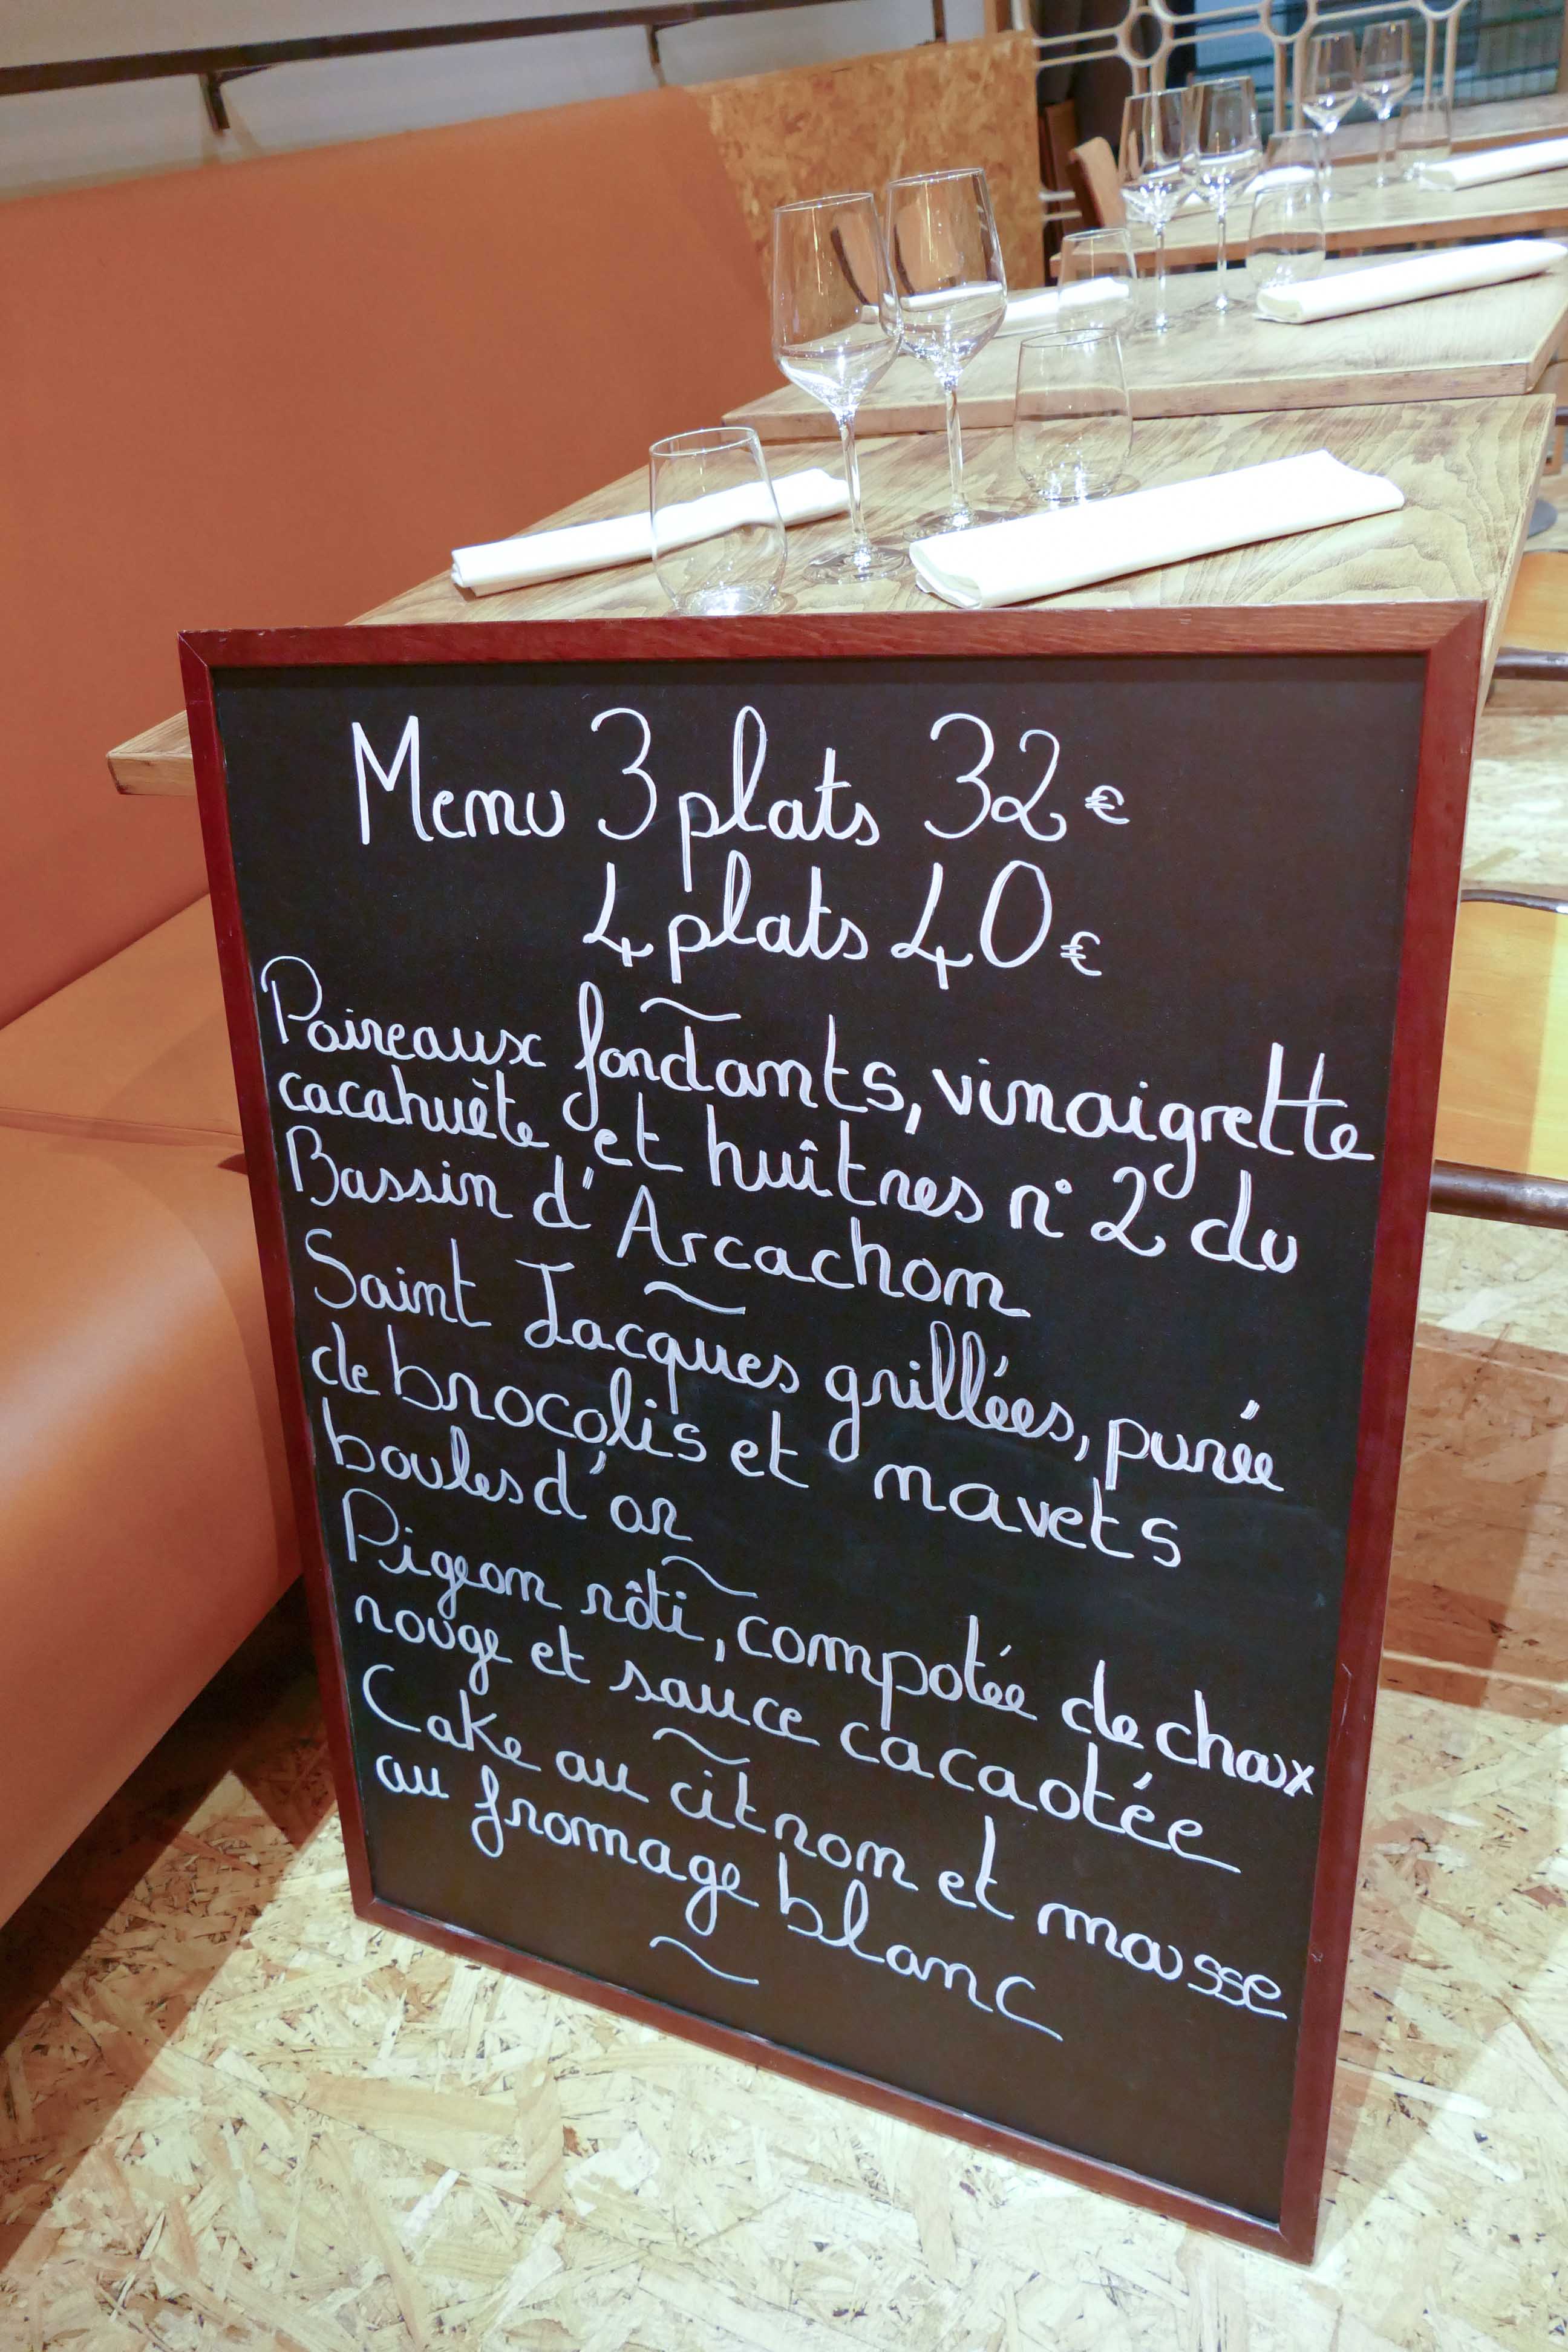 Menu 3 plats 32€
4 plats 40€
~
Poireaux fondants, vinaigrette
cacahuète et huîtres n°2 du
Bassin d'Arcachon
~
Saint Jacques grillées, purée
de brocolis et navets
boules d'or
~
Pigeon rôti, compotée de choux
rouge et sauce cacaotée
~
Cake au citron et mousse
au fromage blanc
~